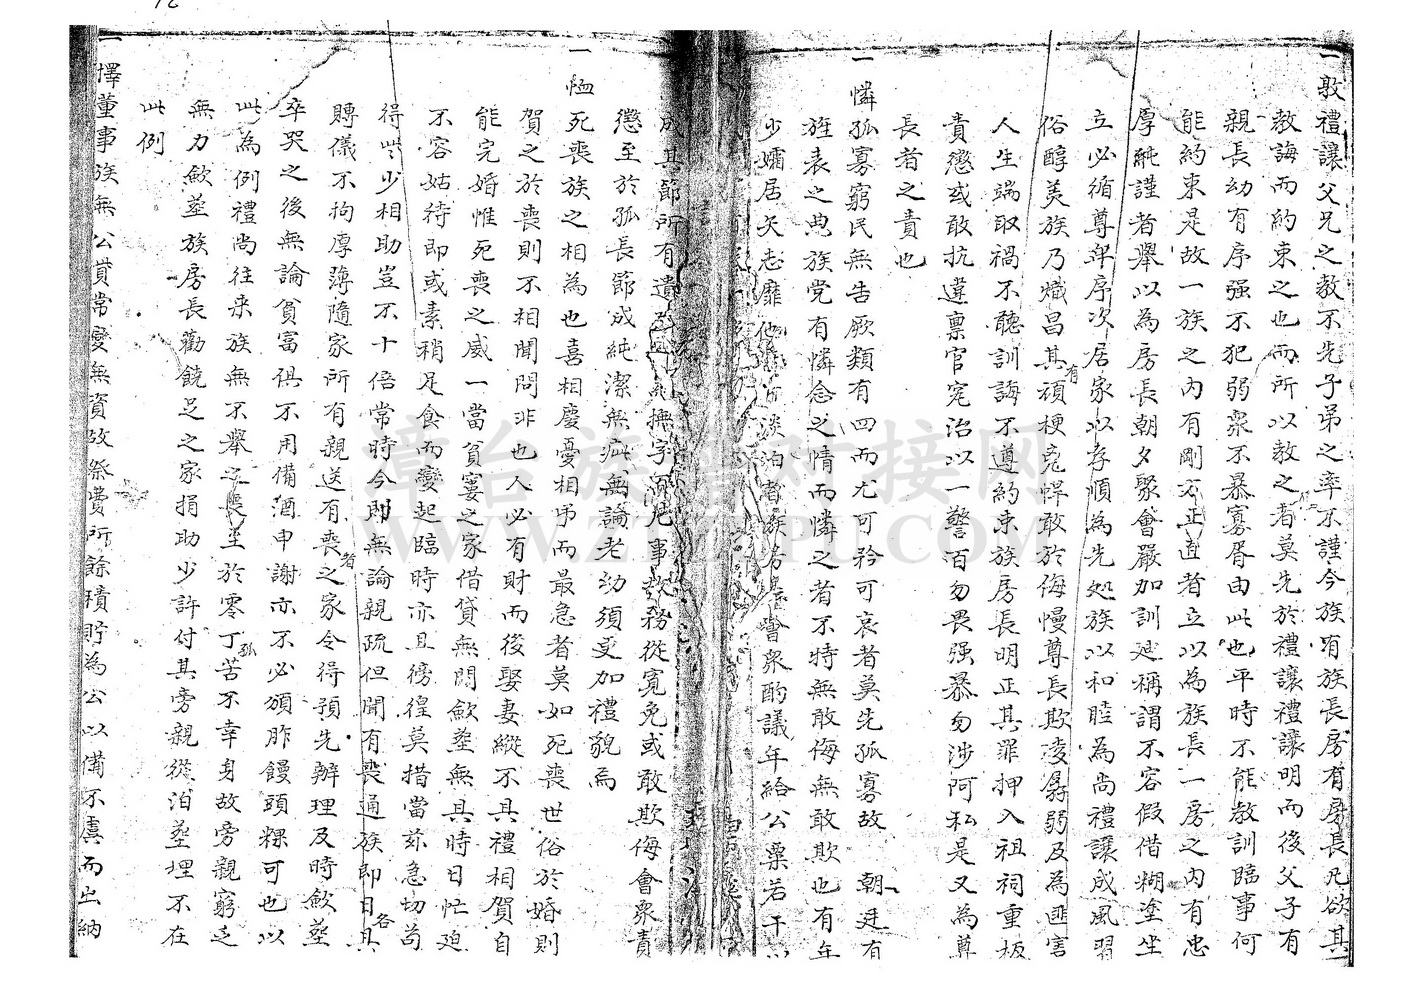 一敦禮讓父兄之教不先子弟之率不謹今族宥族長房有房長凡欲其
教誨而約束之也而所以教之者莫先於禮讓禮讓明而後父子有
親長幼有序强不犯弱衆不暴寡胥由此也平時不能教訓臨事何
能約束是故一族之內有剛方正直者立以為族長一房之內有忠
厚純謹者舉以為房長朝夕聚會嚴加訓廸稱謂不容假借糊塗坐
立必循尊卑序次居家以孝順為先処族以和睦為尚禮讓成風習
俗醇美族乃熾昌其有頑梗兇悍敢於侮慢尊長欺凌孱弱及為匪害
人生端取禍不聽訓誨不遵約束族房長明正其罪押入祖祠重板
責懲或敢抗違禀官究治以一警百勿畏强暴勿涉阿私是又為尊
長者之責也
一憐孤寡窮民無告厥類有四而尤可矜可哀者莫先孤寡故 朝廷有
旌表之典族党有憐念之情而憐之者不特無敢侮無敢欺也有年
少孀居矢志靡他 淡泊者族 會衆酌議年給公粟若干以
成其節所有遺 無撫字 凡事 務從寬免或敢欺侮會衆責
懲至於孤長節成純潔無疵無論老幼須受加禮貌焉
一恤死喪族之相為也喜相慶憂相吊而最急者莫如死喪世俗於婚則
賀之於喪則不相聞問非也人必有財而後娶妻縱不具禮相賀自
能完婚惟死喪之威一當貧窶之家借貸無門歛塟無具時日忙迫
不容姑待即或素稍足食而變起臨時亦且徬徨莫措當茲急切苟
得些少相助豈不十倍常時今即無論親疏但聞有喪者通族即日各具
賻儀不拘厚薄隨家所有親送有喪之家令得預先辦理及時歛塟
卒哭之後無論貧富俱不用備酒申謝亦不必頒胙饅頭粿可也以
此為例禮尚往来族無不舉之喪至於零丁孤苦不幸身故旁親窮乏
無力歛塟族房長勸饒足之家捐助少許付其旁親從泊塟埋不在
此例
一擇董事族無公貲常變無資故祭費所餘積貯為公以備不虞而出納